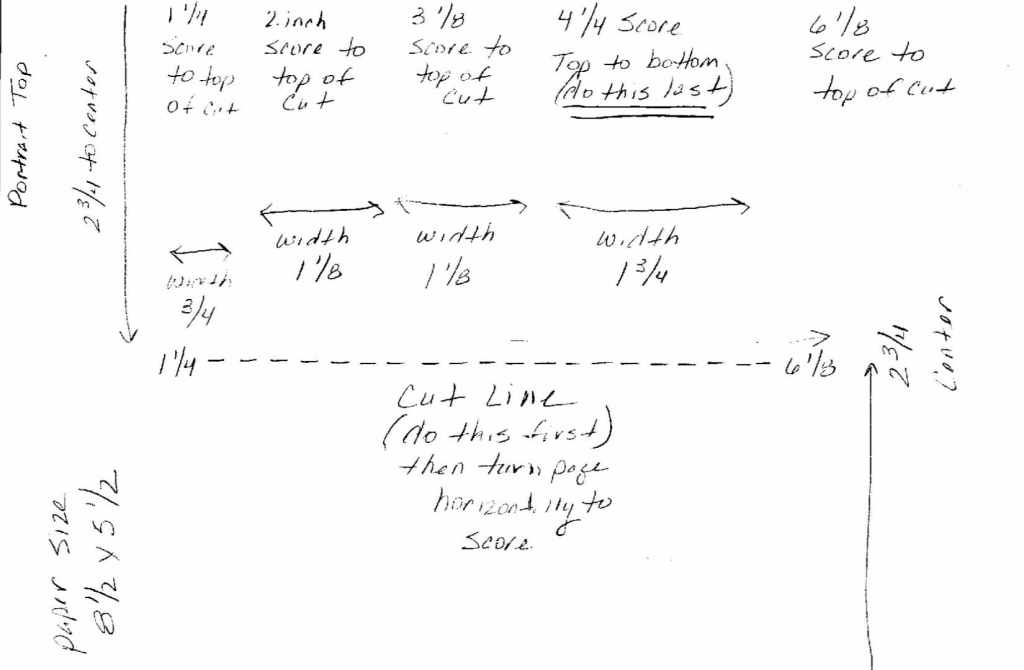 1 1/4
Score
to top
of cut
2 inch
Score to
top of
Cut
3 1/8
Score to
top of
Cut
4 1/4 Score
Top to bottom
(do this last)
6 1/8
Score to
top of cut
Portrait Top
2 3/4 to center
width
3/4
width
1 1/8
width
1 1/8
width
1 3/4
1 1/4
6 1/8
Cut Line
(do this first)
then turn page
horizontilly to
Score
2 3/4
Center
paper size
8 1/2 x 5 1/2